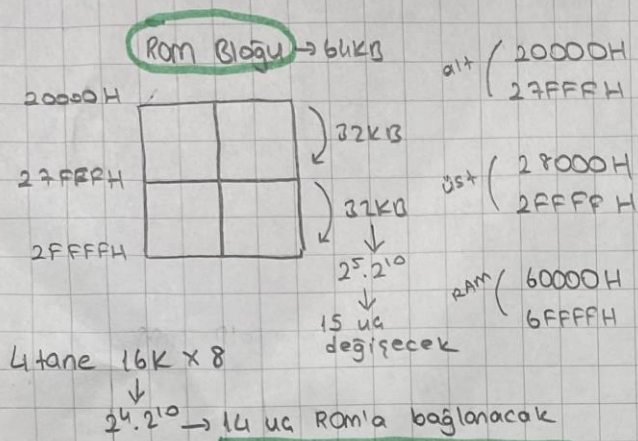 ROM Bloğu → 64KB
20000H
27FFFH
2FFFFH
32KB
32KB
↓
2⁵.2¹⁰
↓
15 uç
değişecek
alt ( 20000H
27FFFH
üst ( 28000H
2FFFFH
RAM ( 60000H
6FFFFH
4 tane 16K x 8
↓
2⁴.2¹⁰ → 14 uç ROM'a bağlanacak